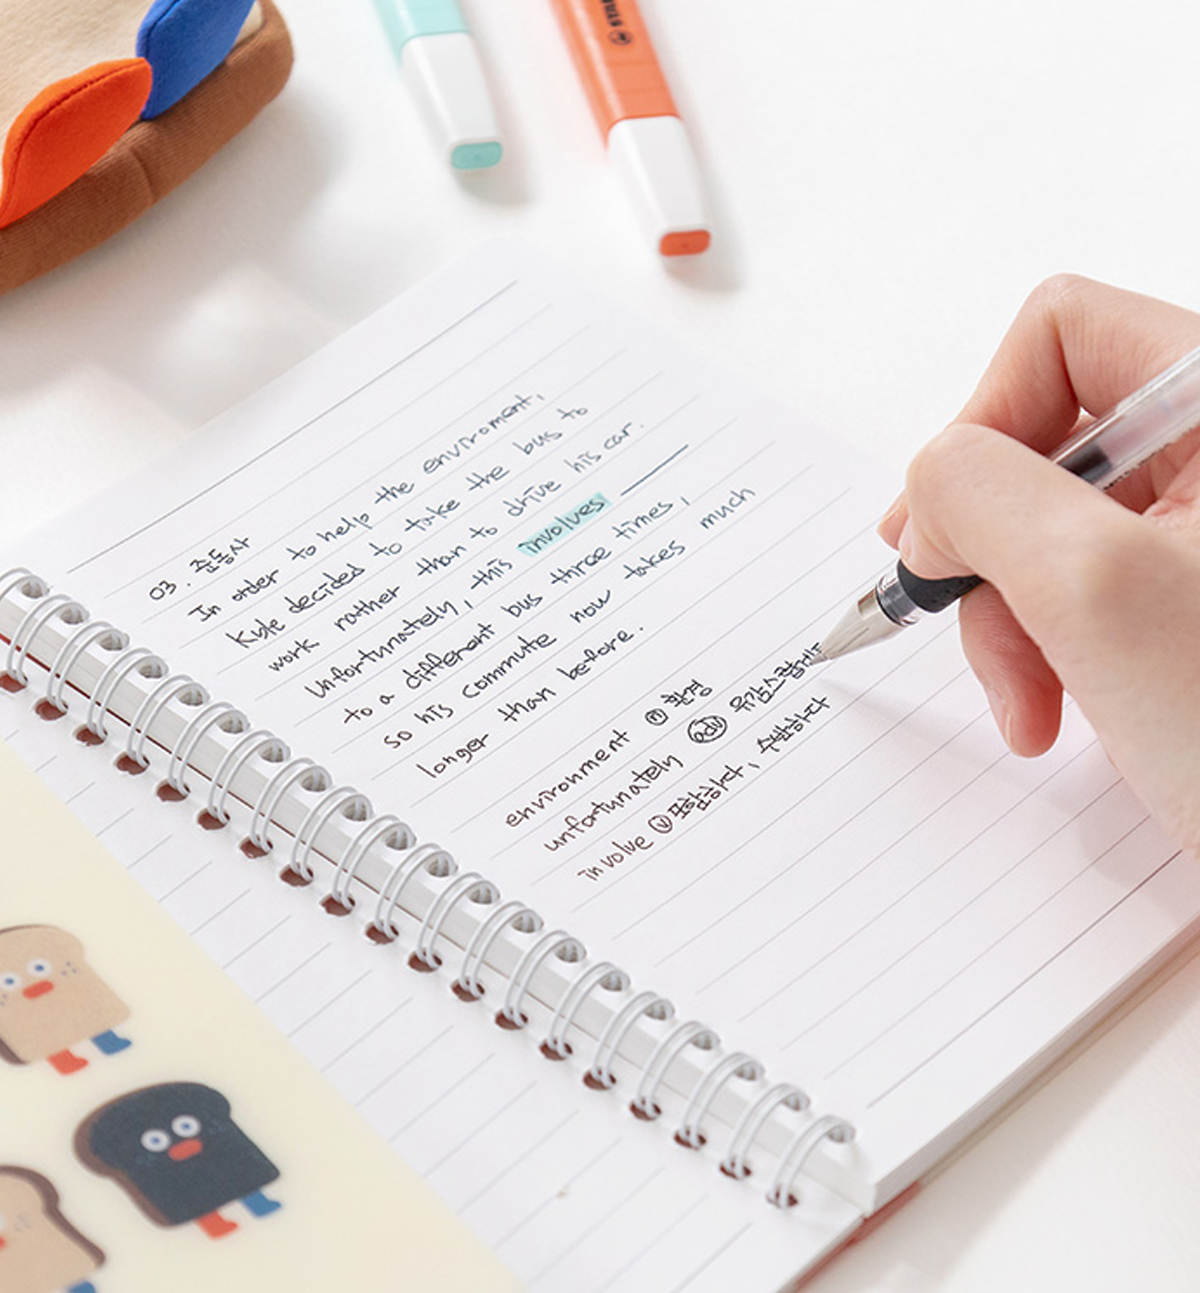 03. 준동사
In order to help the enviroment,
Kyle decided to take the bus to
work rather than to drive his car.
Unfortunately, this involves ______
to a different bus three times,
so his commute now takes much
longer than before.
environment ⓝ 환경
unfortunately adv 유감스럽게도
involve ⓥ 포함하다, 수반하다